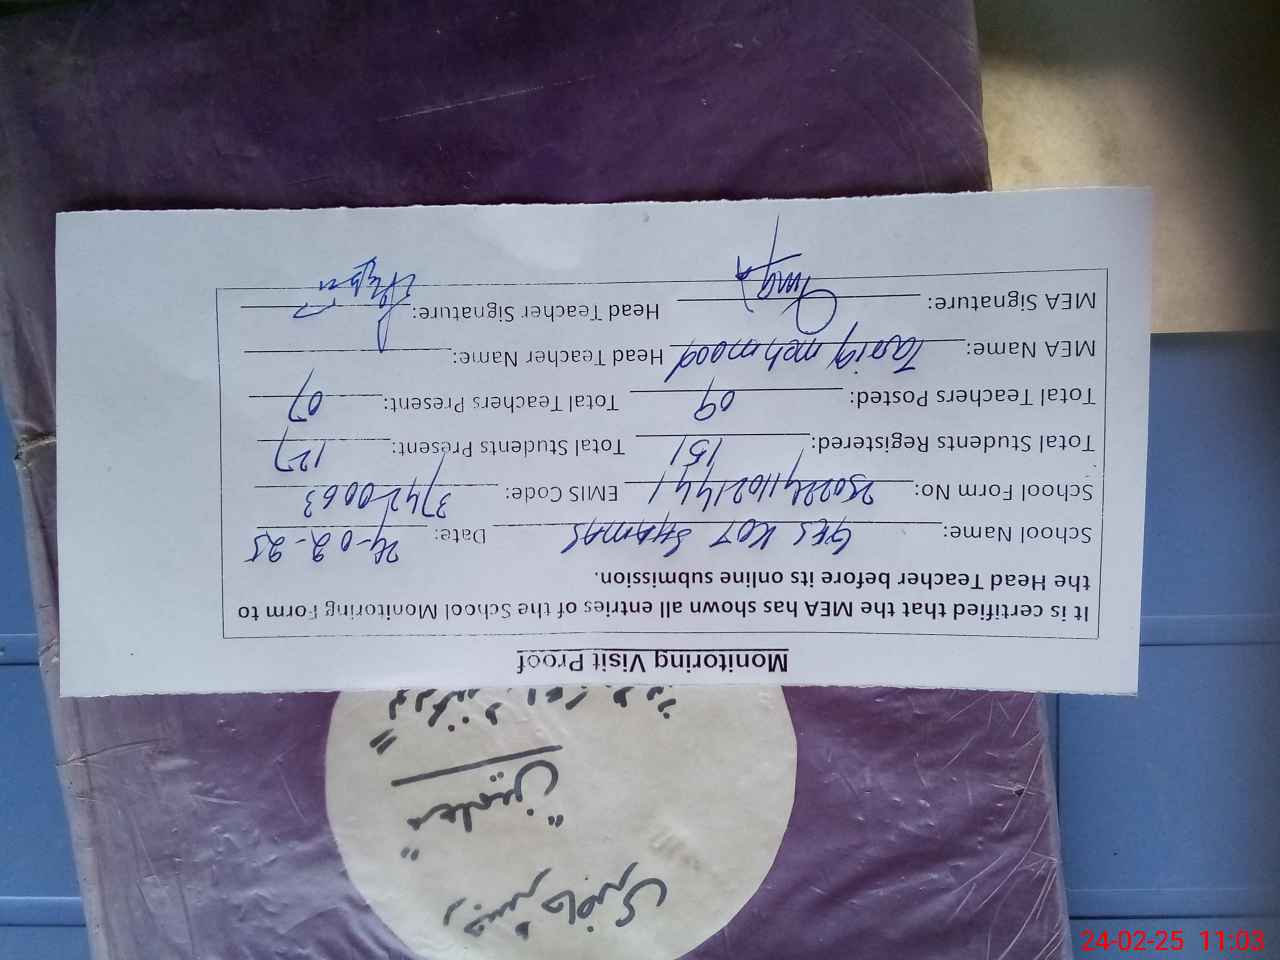 Monitoring Visit Proof
It is certified that the MEA has shown all entries of the School Monitoring Form to
the Head Teacher before its online submission.
School Name: GES KOT SHAMAS Date: 24-02-25
School Form No: EMIS Code: 37420063
Total Students Registered: 151 Total Students Present: 127
Total Teachers Posted: 09 Total Teachers Present: 07
MEA Name: Tariq mehmood Head Teacher Name:
MEA Signature: Head Teacher Signature:
رجسٹر حاضری
معلمین
24-02-25 11:03